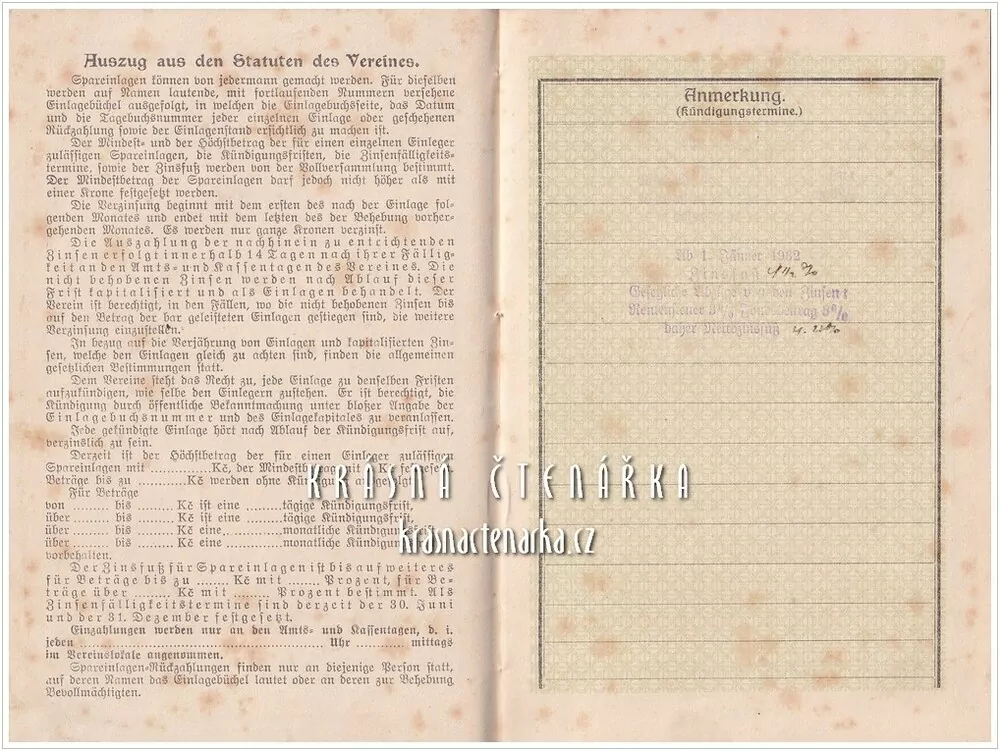 Auszug aus den Statuten des Vereines.
Spareinlagen können von jedermann gemacht werden. Für dieselben
werden auf Namen lautende, mit fortlaufenden Nummern versehene
Einlagebüchel ausgefolgt, in welchen die Einlagebuchsseite, das Datum
und die Tagebuchsnummer jeder einzelnen Einlage oder geschehenen
Rückzahlung sowie der Einlagenstand ersichtlich zu machen ist.
Der Mindest- und der Höchstbetrag der für einen einzelnen Einleger
zulässigen Spareinlagen, die Kündigungsfristen, die Zinsenfälligkeits-
termine, sowie der Zinsfuß werden von der Vollversammlung bestimmt.
Der Mindestbetrag der Spareinlagen darf jedoch nicht höher als mit
einer Krone festgesetzt werden.
Die Verzinsung beginnt mit dem ersten des nach der Einlage fol-
genden Monates und endet mit dem letzten des der Behebung vorher-
gehenden Monates. Es werden nur ganze Kronen verzinst.
Die Auszahlung der nachhinein zu entrichtenden
Zinsen erfolgt innerhalb 14 Tagen nach ihrer Fällig-
keit an den Amts- und Kassentagen des Vereines. Die
nicht behobenen Zinsen werden nach Ablauf dieser
Frist kapitalisiert und als Einlagen behandelt. Der
Verein ist berechtigt, in den Fällen, wo die nicht behobenen Zinsen bis
auf den Betrag der bar geleisteten Einlagen gestiegen sind, die weitere
Verzinsung einzustellen.
In bezug auf die Verjährung von Einlagen und kapitalisierten Zin-
sen, welche den Einlagen gleich zu achten sind, finden die allgemeinen
gesetzlichen Bestimmungen statt.
Dem Vereine steht das Recht zu, jede Einlage zu denselben Fristen
aufzukündigen, wie selbe den Einlegern zustehen. Er ist berechtigt, die
Kündigung durch öffentliche Bekanntmachung unter bloßer Angabe der
Einlagebuchsnummer und des Einlagekapitales zu veranlassen.
Jede gekündigte Einlage hört nach Ablauf der Kündigungsfrist auf,
verzinslich zu sein.
Derzeit ist der Höchstbetrag der für einen Einleger zulässigen
Spareinlagen mit .............Kč, der Mindestbetrag mit
Beträge bis zu ............Kč werden ohne
Für Beträge
von ......... bis ......... Kč ist eine .........tägige Kündigungsfrist,
über ......... bis ......... Kč ist eine .........tägige Kündigungsfrist,
über ......... bis ......... Kč eine.............monatliche
über ......... bis ......... Kč eine .............monatliche
vorbehalten.
Der Zinsfuß für Spareinlagen ist bis auf weiteres
für Beträge bis zu ........ Kč mit ........ Prozent, für Be-
träge über ......... Kč mit ......... Prozent bestimmt. Als
Zinsenfälligkeitstermine sind derzeit der 30. Juni
und der 31. Dezember festgesetzt.
Einzahlungen werden nur an den Amts- und Kassentagen, d. i.
jeden ............................................................ Uhr ............ mittags
im Vereinslokale angenommen.
Spareinlagen-Rückzahlungen finden nur an diejenige Person statt,
auf deren Namen das Einlagebüchel lautet oder an deren zur Behebung
Bevollmächtigten.
Anmerkung.
(Kündigungstermine.)
Ab 1. Jänner 1932
Zinsfuß 4½ %
Rentensteuer 3%
daher Nettozinsfuß
KRÁSNÁ ČTENÁŘKA
krasnactenarka.cz